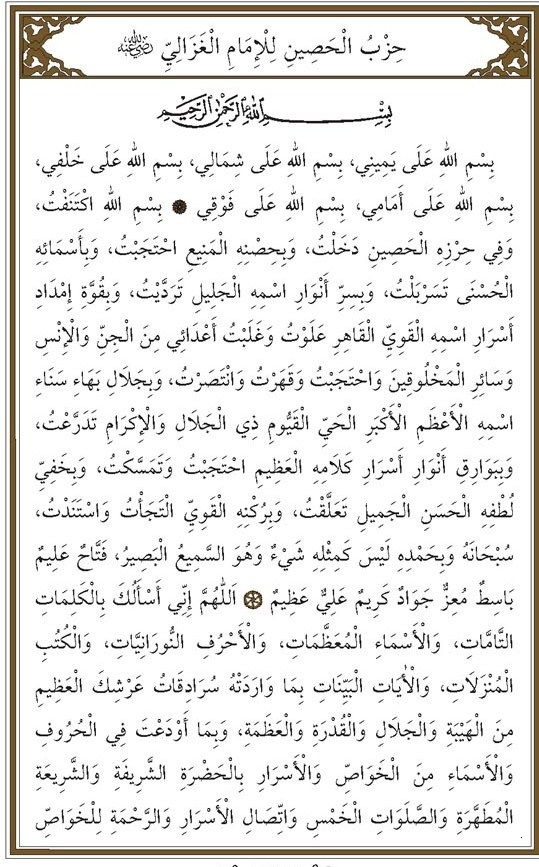 حِزْبُ الْحَصِينِ لِلْإِمَامِ الْغَزَالِيِّ رَضِيَ اللهُ عَنْهُ
بِسْمِ اللهِ الرَّحْمٰنِ الرَّحِيمِ
بِسْمِ اللهِ عَلَى يَمِينِي، بِسْمِ اللهِ عَلَى شِمَالِي، بِسْمِ اللهِ عَلَى خَلْفِي،
بِسْمِ اللهِ عَلَى أَمَامِي، بِسْمِ اللهِ عَلَى فَوْقِي ۞ بِسْمِ اللهِ اكْتَنَفْتُ،
وَفِي حِرْزِهِ الْحَصِينِ دَخَلْتُ، وَبِحِصْنِهِ الْمَنِيعِ احْتَجَبْتُ، وَبِأَسْمَائِهِ
الْحُسْنَى تَسَرْبَلْتُ، وَبِسِرِّ أَنْوَارِ اسْمِهِ الْجَلِيلِ تَرَدَّيْتُ، وَبِقُوَّةِ إِمْدَادِ
أَسْرَارِ اسْمِهِ الْقَوِيِّ الْقَاهِرِ عَلَوْتُ وَغَلَبْتُ أَعْدَائِي مِنَ الْجِنِّ وَالْإِنْسِ
وَسَائِرِ الْمَخْلُوقِينَ وَاحْتَجَبْتُ وَقَهَرْتُ وَانْتَصَرْتُ، وَبِجَلَالِ بَهَاءِ سَنَاءِ
اسْمِهِ الْأَعْظَمِ الْأَكْبَرِ الْحَيِّ الْقَيُّومِ ذِي الْجَلَالِ وَالْإِكْرَامِ تَدَرَّعْتُ،
وَبِبَوَارِقِ أَنْوَارِ أَسْرَارِ كَلَامِهِ الْعَظِيمِ احْتَجَبْتُ وَتَمَسَّكْتُ، وَبِخَفِيِّ
لُطْفِهِ الْحَسَنِ الْجَمِيلِ تَعَلَّقْتُ، وَبِرُكْنِهِ الْقَوِيِّ الْتَجَأْتُ وَاسْتَنَدْتُ،
سُبْحَانَهُ وَبِحَمْدِهِ لَيْسَ كَمِثْلِهِ شَيْءٌ وَهُوَ السَّمِيعُ الْبَصِيرُ، فَتَّاحٌ عَلِيمٌ
بَاسِطٌ مُعِزٌّ جَوَادٌ كَرِيمٌ عَلِيٌّ عَظِيمٌ ۞ اَللّٰهُمَّ إِنِّي أَسْأَلُكَ بِالْكَلِمَاتِ
التَّامَّاتِ، وَالْأَسْمَاءِ الْمُعَظَّمَاتِ، وَالْأَحْرُفِ النُّورَانِيَّاتِ، وَالْكُتُبِ
الْمُنْزَلَاتِ، وَالْآيَاتِ الْبَيِّنَاتِ بِمَا وَارَدَتْهُ سُرَادِقَاتُ عَرْشِكَ الْعَظِيمِ
مِنَ الْهَيْبَةِ وَالْجَلَالِ وَالْقُدْرَةِ وَالْعَظَمَةِ، وَبِمَا أَوْدَعْتَ فِي الْحُرُوفِ
وَالْأَسْمَاءِ مِنَ الْخَوَاصِّ وَالْأَسْرَارِ بِالْحَضْرَةِ الشَّرِيفَةِ وَالشَّرِيعَةِ
الْمُطَهَّرَةِ وَالصَّلَوَاتِ الْخَمْسِ وَاتِّصَالِ الْأَسْرَارِ وَالرَّحْمَةِ لِلْخَوَاصِّ